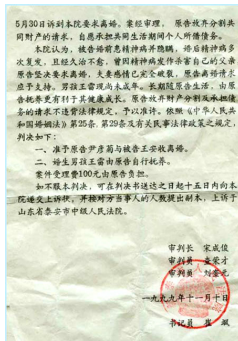 5月30日诉到本院要求离婚。案经审理，原告放弃分割共
同财产的请求，自愿承担共同生活期间个人所借债务。
本院认为，被告婚前患精神病并隐瞒，婚后精神病多
次复发，且经久治不愈，曾因精神病发作杀害自己的父亲
原告坚决要求离婚，夫妻感情已完全破裂，原告离婚请求
应予支持。男孩王雷现尚未成年。长期随原告生活，由
告抚养更有利于其健康成长。原告放弃财产分割及承担债
务的请求不违背法律规定，予以准许。依照《中华人民共
和国婚姻法》第25条、第29条及有关民事法律政策之规定，
判决如下：
一、准予原告尹彦菊与被告王安收离婚。
二、婚生男孩王雷由原告自行抚养。
案件受理费100元由原告负担。
如不服本判决，可在判决书送达之日起十五日内向本
院递交上诉状，并按对方当事人的人数提出副本，上诉于
山东省泰安市中级人民法院。
审判长 宋成俊
审判员 查荣才
审判员
一九九九年十一月十日
书记员 崔